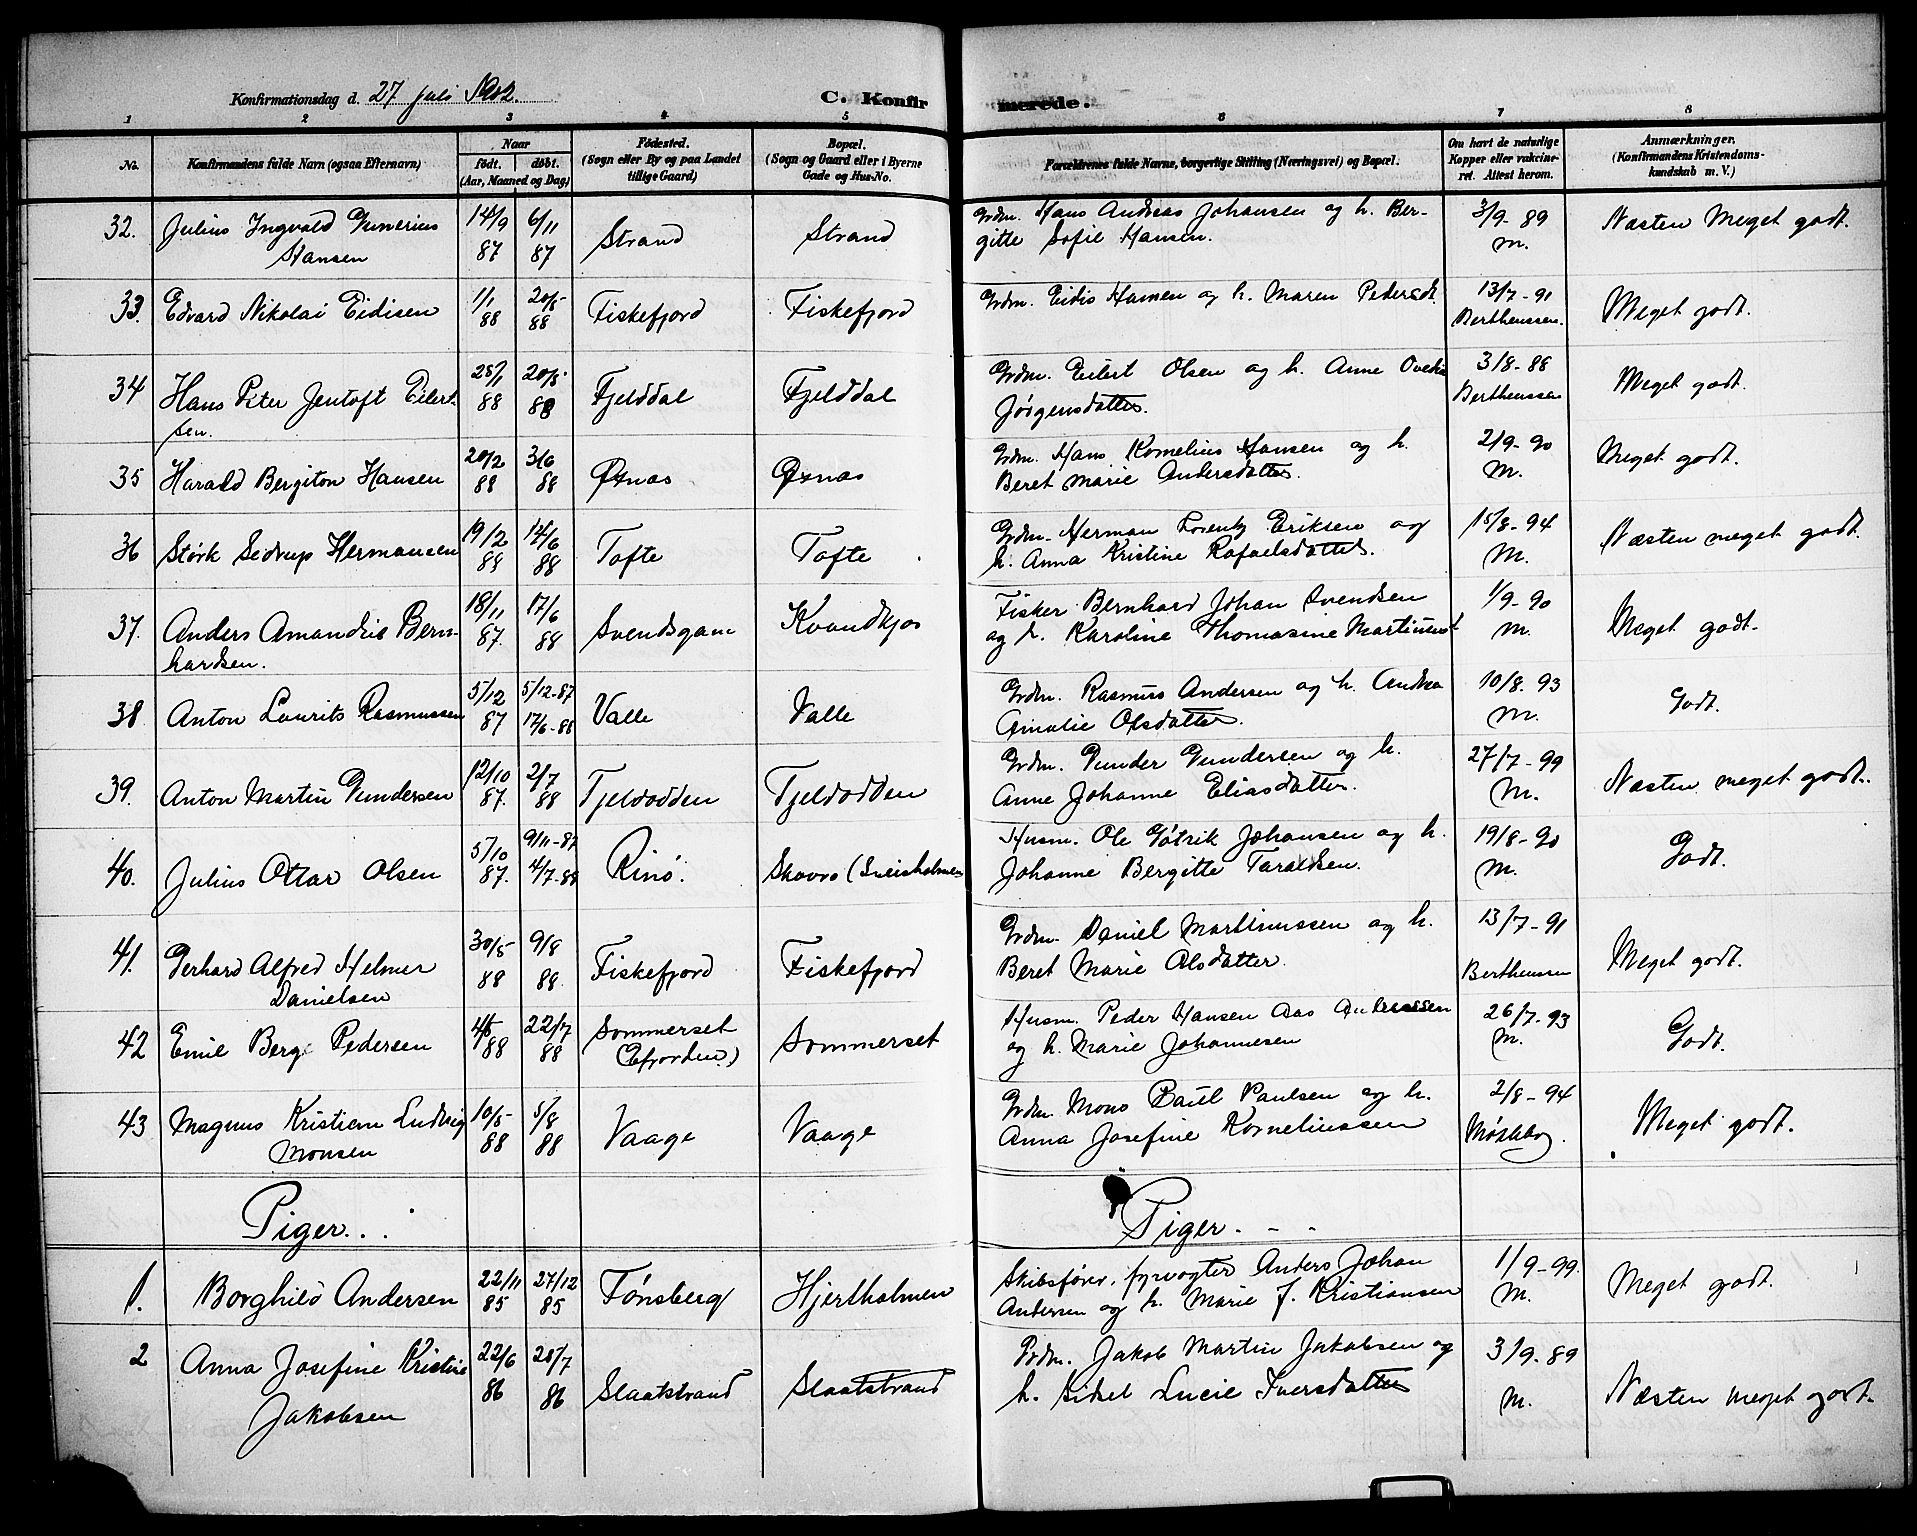 Konfirmationsdag d. 27 juli 1902.
C. Konfirmerede.
1 2 3 4 5 6 7 8
No.
Konfirmandens fulde Navn (ogsaa Efternavn)
Naar
født. døbt.
(Aar, Maaned og Dag)
Fødested.
(Sogn eller By og paa Landet
tillige Gaard)
Bopæl.
(Sogn og Gaard eller i Byerne
Gade og Hus-No.
Forældrenes fulde Navne, borgerlige Stilling (Næringsvei) og Bopæl.
Om havt de naturlige
Kopper eller vakcine-
ret. Attest herom.
Anmærkninger.
(Konfirmandens Kristendoms-
kundskab m. V.)
32. Julius Ingvald Gunerius 14/9 6/11 Strand Strand Grdm. Hans Andreas Johansen og h. Ber- 3/9-89 Næsten Meget godt.
Hansen 87 87 gitte Sofie Hansen. M.
33. Edvard Nikolai Eidisen 1/1 20/5 Fiskefjord Fiskefjord Grdm. Eidis Hansen og h. Maren Pedersdt. 13/7-91 Meget godt.
88 88 Bertheussen.
34 Hans Peter Jentoft Eilert- 25/1 20/5 Fjelddal Fjelddal Grdm. Eilert Olsen og h. Anne 3/8-88 Meget godt.
sen. 88 88 Jørgensdatter. Bertheussen
35 Harald Bergiton Hansen 20/2 3/6 Øxnæs Øxnæs Grdm. Hans Kornelius Hansen og h. 2/9-90 Meget godt.
88 88 Beret Marie Andersdatter. M.
36 Størk Sedrup Hermansen 19/2 14/6 Tofte Tofte Grdm. Herman Lorentz Eriksen og 15/8-94 Næsten meget godt.
88 88 h. Anna Kristine Rafaelsdatter. M.
37. Anders Amandris Bern- 18/11 17/6 Svendsgam Kvandkjos Fisker Bernhard Johan Svendsen 1/9-90 Meget godt.
hardsen. 87. 88 og h. Karoline Thomasine M.
38 Anton Laurits Rasmussen 5/12 5/12-87 Valle Valle Grdm. Rasmus Andersen og h. Andrea 10/8-93 Godt.
87 17/6-88 Amalie Olsdatter. M.
39. Anton Martin Gundersen 12/10 2/7 Tjeldodden Tjeldodden Grdm. Gunder Gundersen og h. 27/7-99 Næsten meget godt.
87. 88 Anne Johanne Eliasdatter. M.
40. Julius Ottar Olsen 5/10 9/11-87 Rinø. Skovro Husm. Ole Gótrik Johansen og h. 19/8-90 Godt.
87. 4/7-88 Johanne Bergitte Taraldsen. M.
41. Gerhard Alfred Helmer 30/5 9/8 Fiskefjord Fiskefjord Grdm. Daniel Martinussen og h. 13/7-91 Meget godt.
Danielsen 88 88. Beret Marie Olsdatter. Bertheussen
42 Emil Berg Pedersen 4/5 22/7 Sommerset Sommerset Husm. Peder Hansen Aas Andreassen 26/7-93 Godt.
88 88 (Efjorden.) og h. Marie Johannesen M.
43 Magnus Kristian Ludvig 10/5 5/8 Vaage Vaage Grdm. Mons Paul Paulsen og h. 2/8-94 Meget godt.
Monsen 88 88 Anna Josefine Korneliussen
Piger. Piger.
1. Borghild Andersen 22/11 27/12 Tønsberg Hjertholmen Skibsfører, fyrvogter Anders Johan 1/9-99. Meget godt.
85 85 Andersen og h. Marie J. Kristiansen M.
2 Anna Josefine Kristine 22/6 20/7 Slaatstrand Slaatstrand Grdm. Jakob Martin Jakobsen og 3/9-89 Næsten meget godt.
Jakobsen 86 86 h. Sidsel Lucie Iversdatter M.